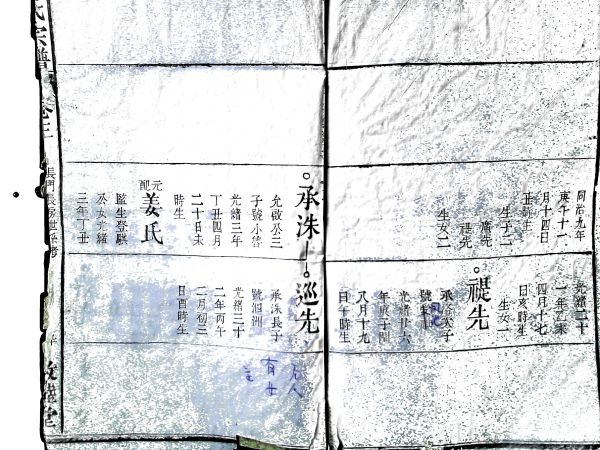 同治九年
庚午十二
月十四日
丑時生
生子二
生女二
光緒二十
一年乙未
四月十七
日亥時生
生女一
禔先
光緒廿六
年庚子閏
八月十九
日午時生
承洙
允啟公三
子號小魯
光緒三年
丁丑四月
二十日未
時生
元配
姜氏
監生登騏
公女光緒
三年丁丑
巡先
承洙長子
號泗洲
光緒三十
二年丙午
二月初三
日酉時生
有女
氏宗譜
卷三